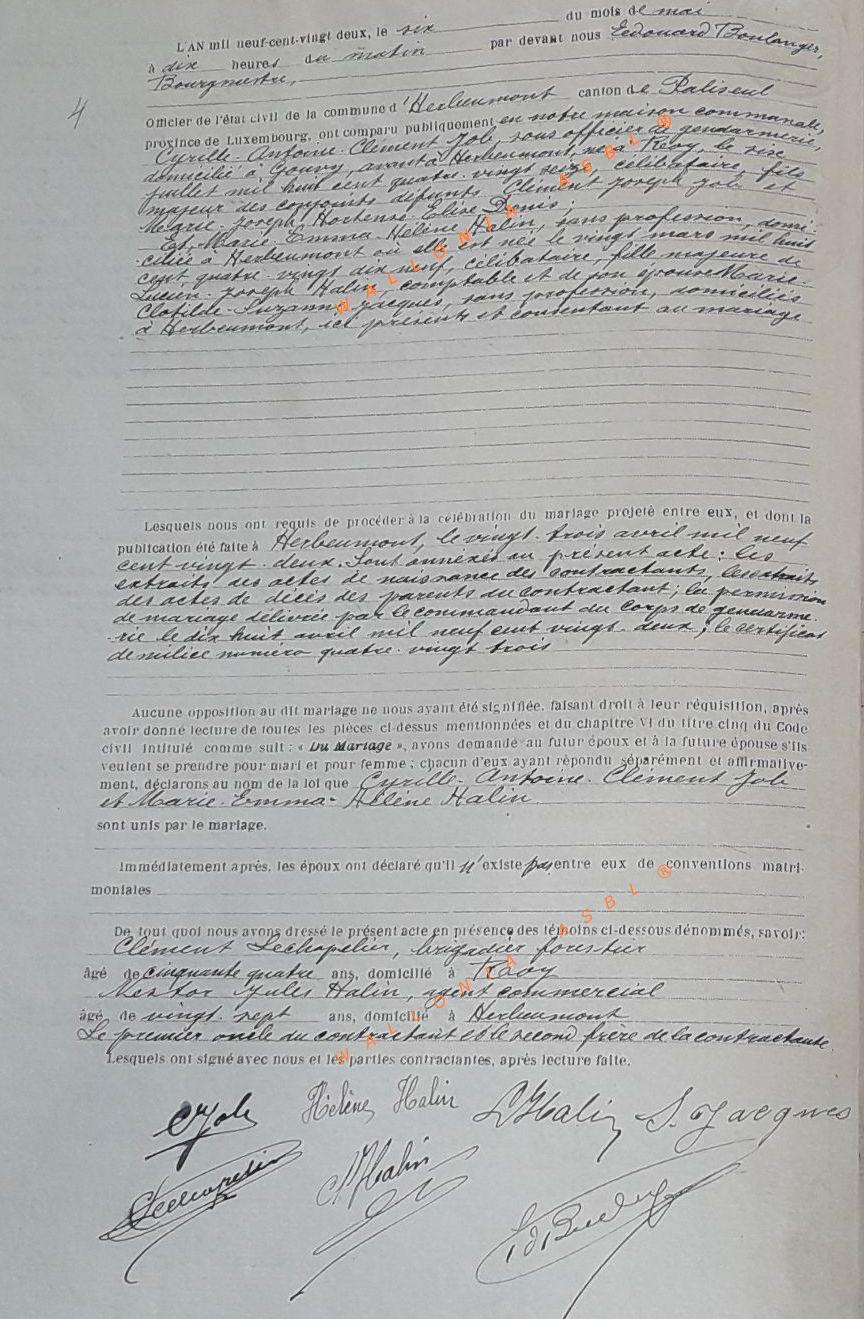 L'AN mil neuf-cent-vingt deux, le six du mois de mai
à dix heures du matin par devant nous Edouard Boulanger,
Bourgmestre,
4
Officier de l'état civil de la commune d'Herbeumont canton de Paliseul
province de Luxembourg, ont comparu publiquement en notre maison communale,
Cyrille-Antoine-Clément Job, sous officier de gendarmerie,
domicilié à Gouvy, avant à Herbeumont, né à le six
juillet mil huit cent quatre-vingt seize, célibataire, fils
majeur des conjoints défunts Clément Joseph Job et
Marie-Joseph Hortense Elise Denis;
Et Marie-Emma-Hélène Halin, sans profession, domi-
ciliée à Herbeumont où elle est née le vingt mars mil huit
cent quatre-vingt dix neuf, célibataire, fille majeure de
Lucien-Joseph Halin, comptable et de son épouse Marie-
Clotilde-Suzanne Jacques, sans profession, domiciliés
à Herbeumont, ici présents et consentant au mariage
Lesquels nous ont requis de procéder à la célébration du mariage projeté entre eux, et dont la
publication été faite à Herbeumont, le vingt-trois avril mil neuf
cent vingt-deux. Sont annexés au présent acte: les
extraits des actes de naissance des contractants, les extraits
des actes de décès des parents du contractant; la permission
de mariage délivrée par le commandant du corps de gendarme-
rie le dix huit avril mil neuf cent vingt-deux; le certificat
de milice numéro quatre-vingt trois
Aucune opposition au dit mariage ne nous ayant été signifiée, faisant droit à leur réquisition, après
avoir donné lecture de toutes les pièces ci-dessus mentionnées et du chapitre VI du titre cinq du Code
civil intitulé comme suit: « Du Mariage », avons demandé au futur époux et à la future épouse s'ils
veulent se prendre pour mari et pour femme; chacun d'eux ayant répondu séparément et affirmative-
ment, déclarons au nom de la loi que Cyrille-Antoine-Clément Job
et Marie-Emma-Hélène Halin
sont unis par le mariage.
Immédiatement après, les époux ont déclaré qu'il n'existe pas entre eux de conventions matri-
moniales
De tout quoi nous avons dressé le présent acte en présence des témoins ci-dessous dénommés, savoir:
Clément Lechapelier, brigadier forestier
âgé de cinquante quatre ans, domicilié à
Nestor Jules Halin, agent commercial
âgé de vingt-sept ans, domicilié à Herbeumont
Le premier oncle du contractant et le second frère de la contractante.
Lesquels ont signé avec nous et les parties contractantes, après lecture faite.
CJob Hélène Halin LHalin S. Jacques
Lechapelier NHalin
WALLONIA ASBL ®
WALLONIA ASBL ®